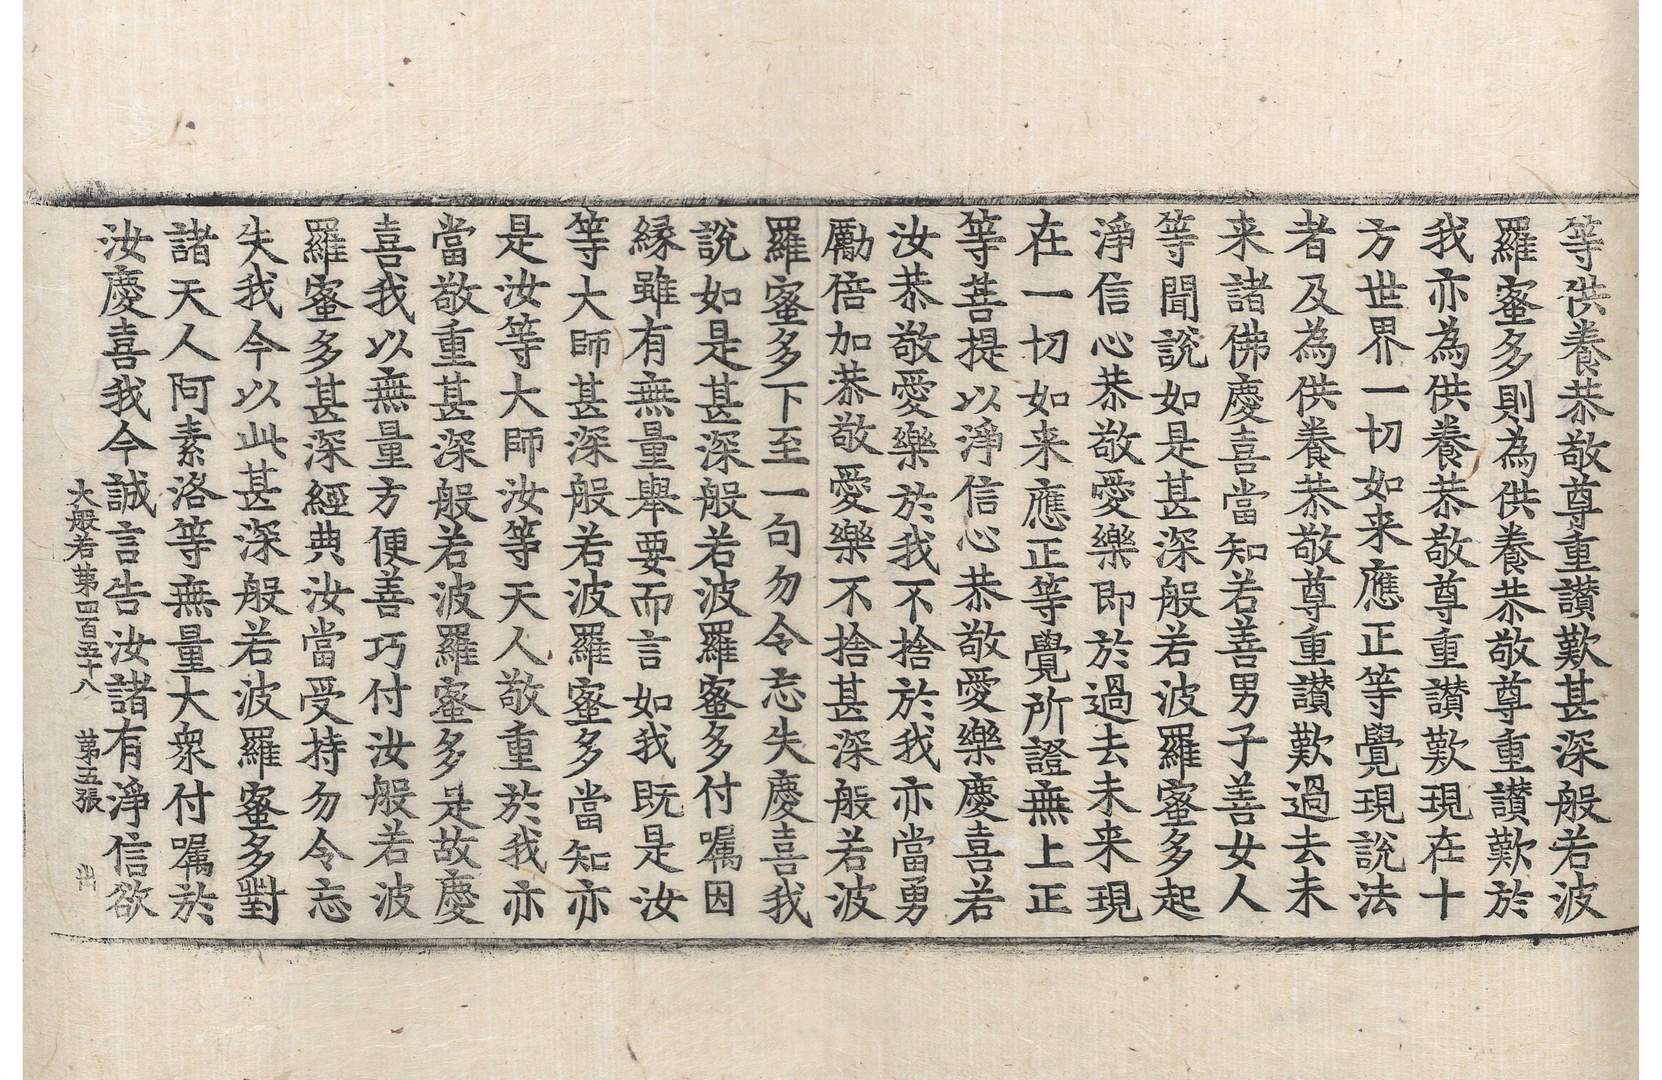 等供養恭敬尊重讃歎甚深般若波
羅蜜多則為供養恭敬尊重讃歎於
我亦為供養恭敬尊重讃歎現在十
方世界一切如来應正等覺現說法
者及為供養恭敬尊重讃歎過去未
来諸佛慶喜當知若善男子善女人
等聞說如是甚深般若波羅蜜多起
淨信心恭敬愛樂即於過去未来現
在一切如来應正等覺所證無上正
等菩提以淨信心恭敬愛樂慶喜若
汝恭敬愛樂於我不捨於我亦當勇
勵倍加恭敬愛樂不捨甚深般若波
羅蜜多下至一句勿令忘失慶喜我
說如是甚深般若波羅蜜多付囑因
緣雖有無量舉要而言如我既是汝
等大師甚深般若波羅蜜多當知亦
是汝等大師汝等天人敬重於我亦
當敬重甚深般若波羅蜜多是故慶
喜我以無量方便善巧付汝般若波
羅蜜多甚深經典汝當受持勿令忘
失我今以此甚深般若波羅蜜多對
諸天人阿素洛等無量大衆付囑於
汝慶喜我今誠言告汝諸有淨信欲
大般若第四百五十八 第五張 出